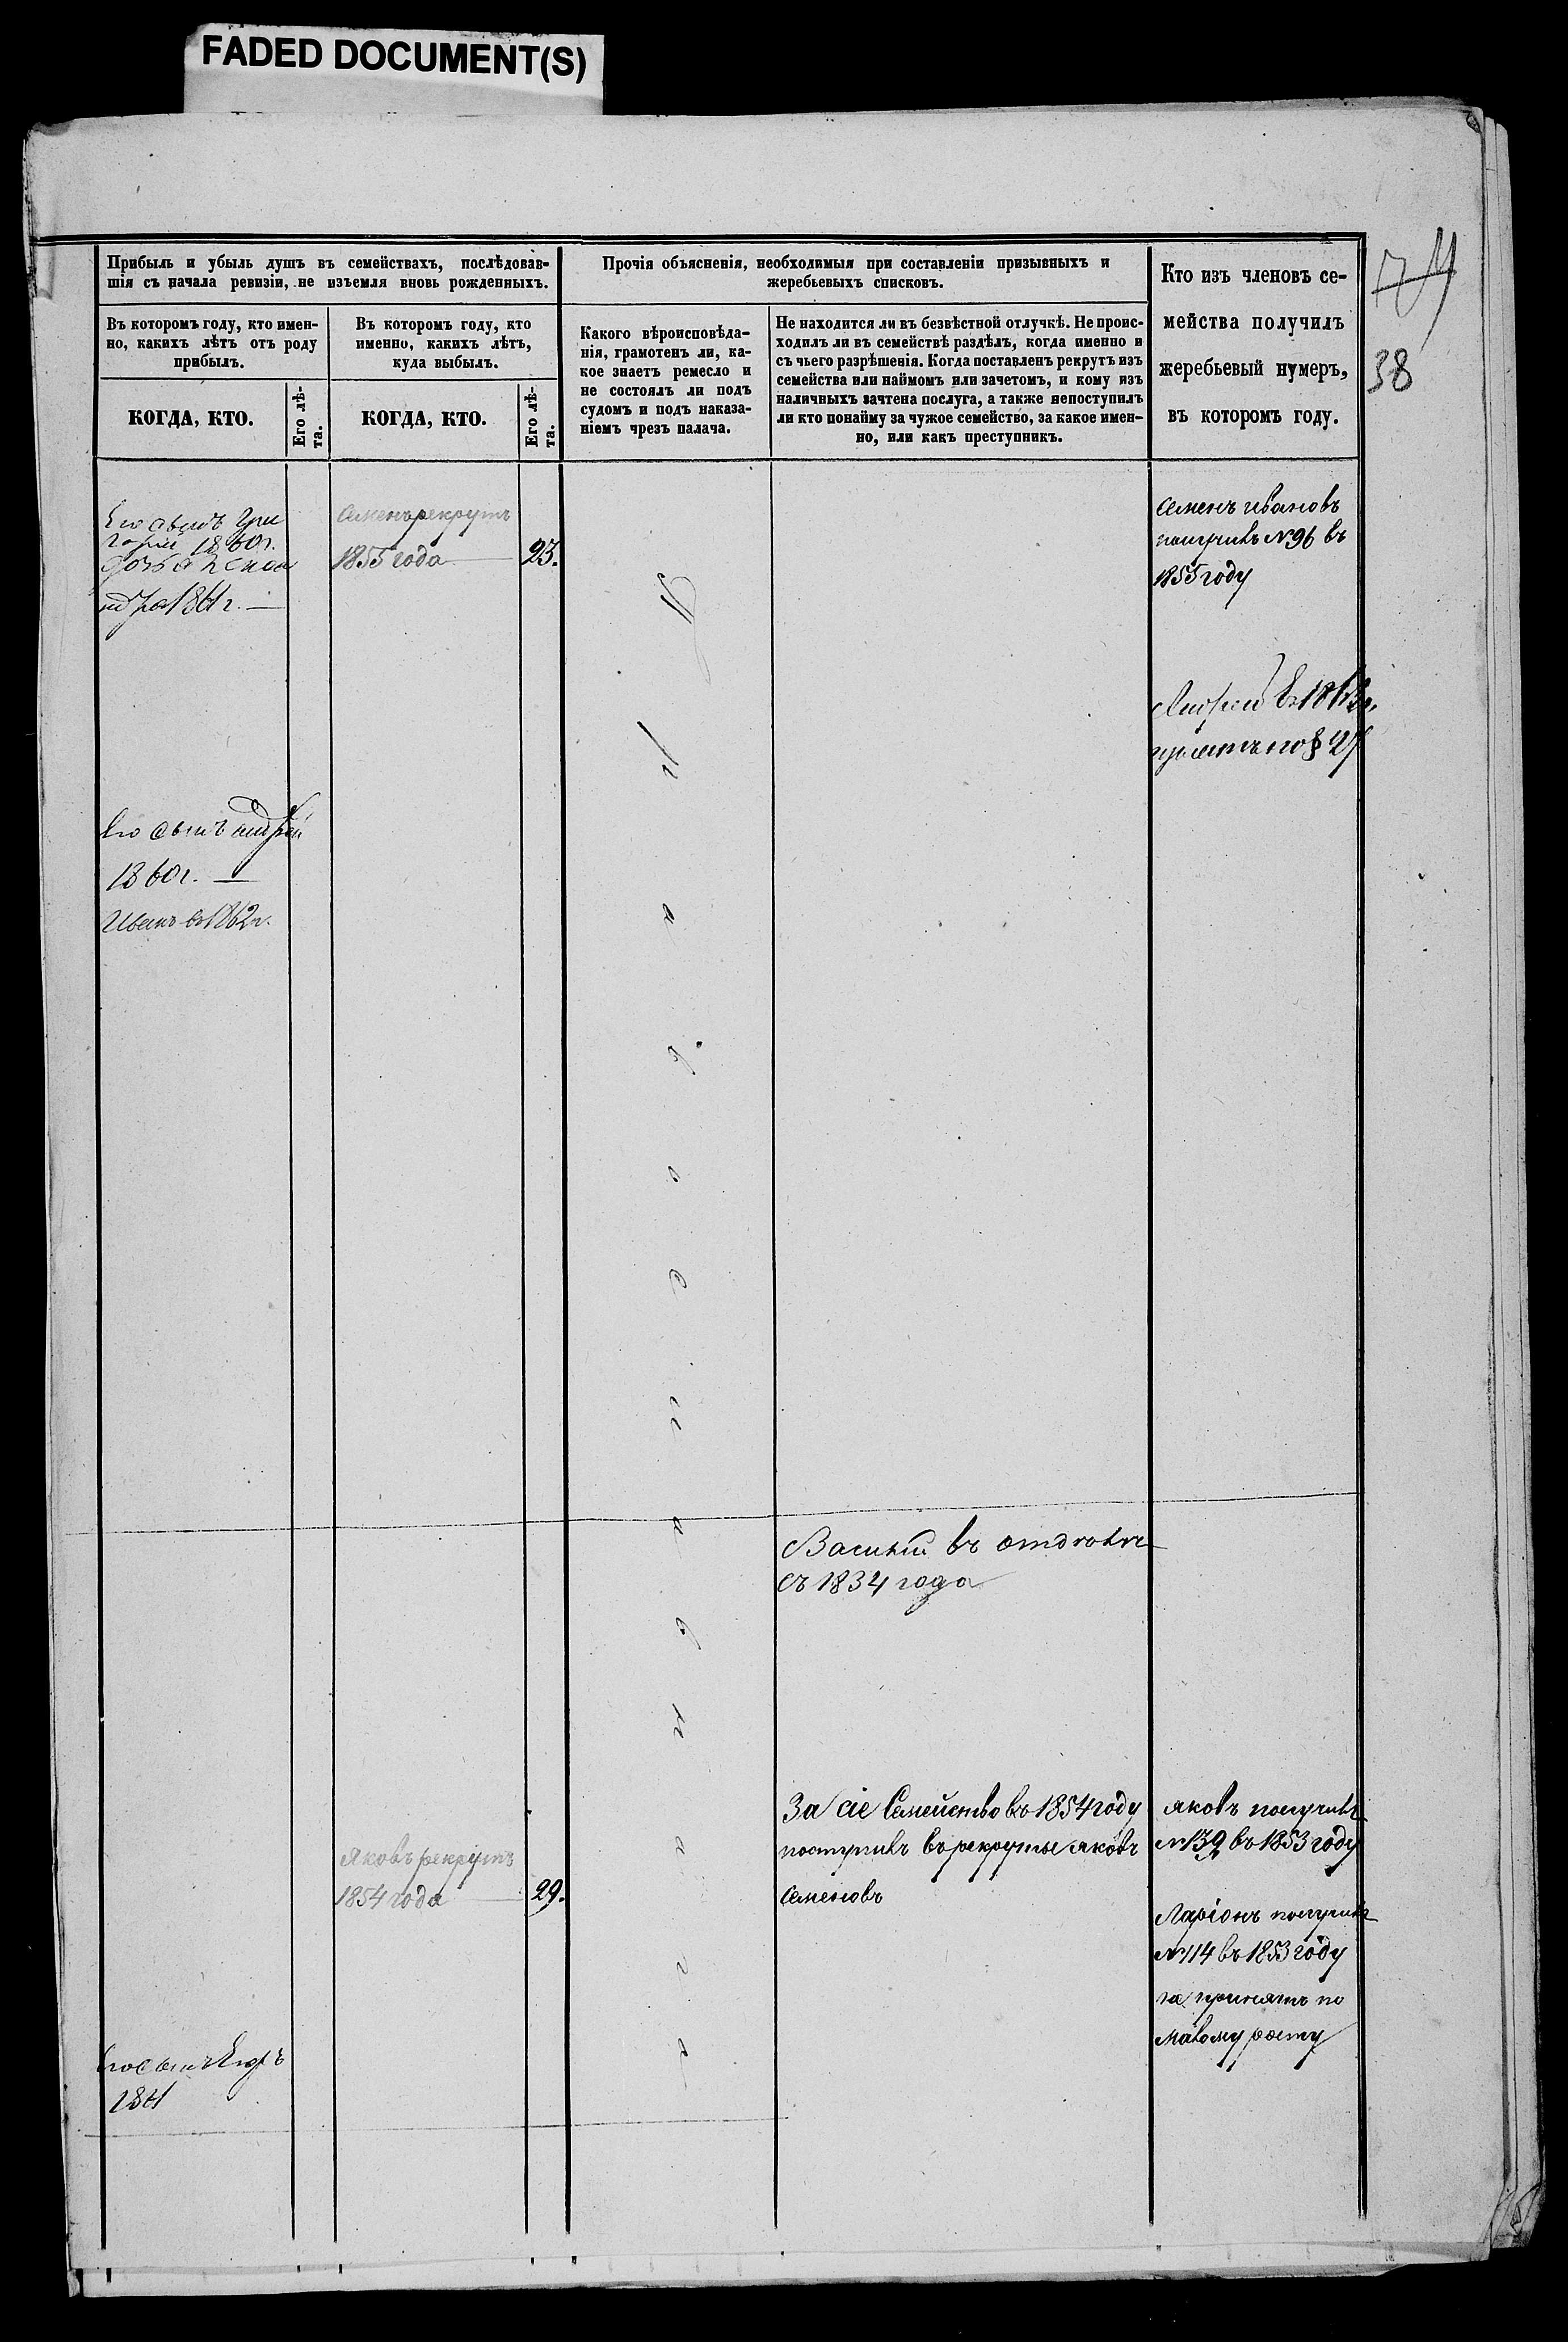 FADED DOCUMENT(S)
74
38
Прибыль и убыль душъ въ семействахъ, послѣдовав-
шія съ начала ревизіи, не изъемля вновь рожденныхъ.
Прочія объясненія, необходимыя при составленіи призывныхъ и
жеребьевыхъ списковъ.
Кто изъ членовъ се-
мейства получилъ
жеребьевый нумеръ,
въ которомъ году.
Въ которомъ году, кто имен-
но, какихъ лѣтъ отъ роду
прибылъ.
Въ которомъ году, кто
именно, какихъ лѣтъ,
куда выбылъ.
Какого вѣроисповѣда-
нія, грамотенъ ли, ка-
кое знаетъ ремесло и
не состоялъ ли подъ
судомъ и подъ наказа-
ніемъ чрезъ палача.
Не находится ли въ безвѣстной отлучкѣ. Не проис-
ходилъ ли въ семействѣ раздѣлъ, когда именно и
съ чьего разрѣшенія. Когда поставленъ рекрутъ изъ
семейства или наймомъ или зачетомъ, и кому изъ
наличныхъ зачтена послуга, а также непоступилъ
ли кто понайму за чужое семейство, за какое имен-
но, или какъ преступникъ.
КОГДА, КТО.
Его лѣ-
та.
КОГДА, КТО.
Его лѣ-
та.
Его сынъ Гри
горій 1860г.
дочь алекса
ндра 1861г.
Семенъ рекрутъ
1855 года 23.
Семенъ ивановъ
получилъ №96 въ
1855 году
Андрей въ 1863г.
по §
Его сынъ андрей
1860г.
Иванъ въ 1862г.
Василій въ
съ 1834 года
За сіе Семейство въ 1854 году
поступилъ въ рекруты яковъ
семеновъ
яковъ получилъ
№139 въ 1853 году
Яковъ рекрутъ
1854 года 29.
Ларіонъ получилъ
№114 въ 1853 году
не принятъ по
малому росту
Его сынъ Егоръ
1861